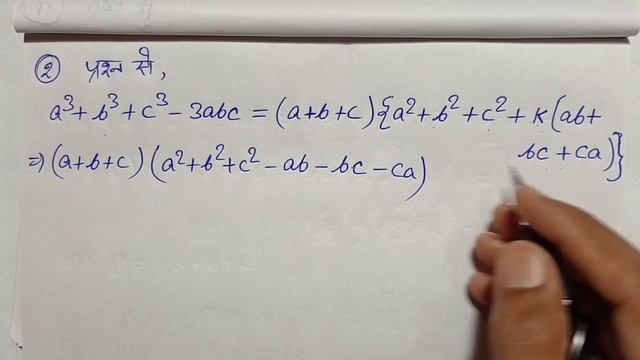 ② प्रश्न से,
a³+b³+c³-3abc = (a+b+c){a²+b²+c²+K(ab+
bc+ca)}
⇒(a+b+c)(a²+b²+c²-ab-bc-ca)